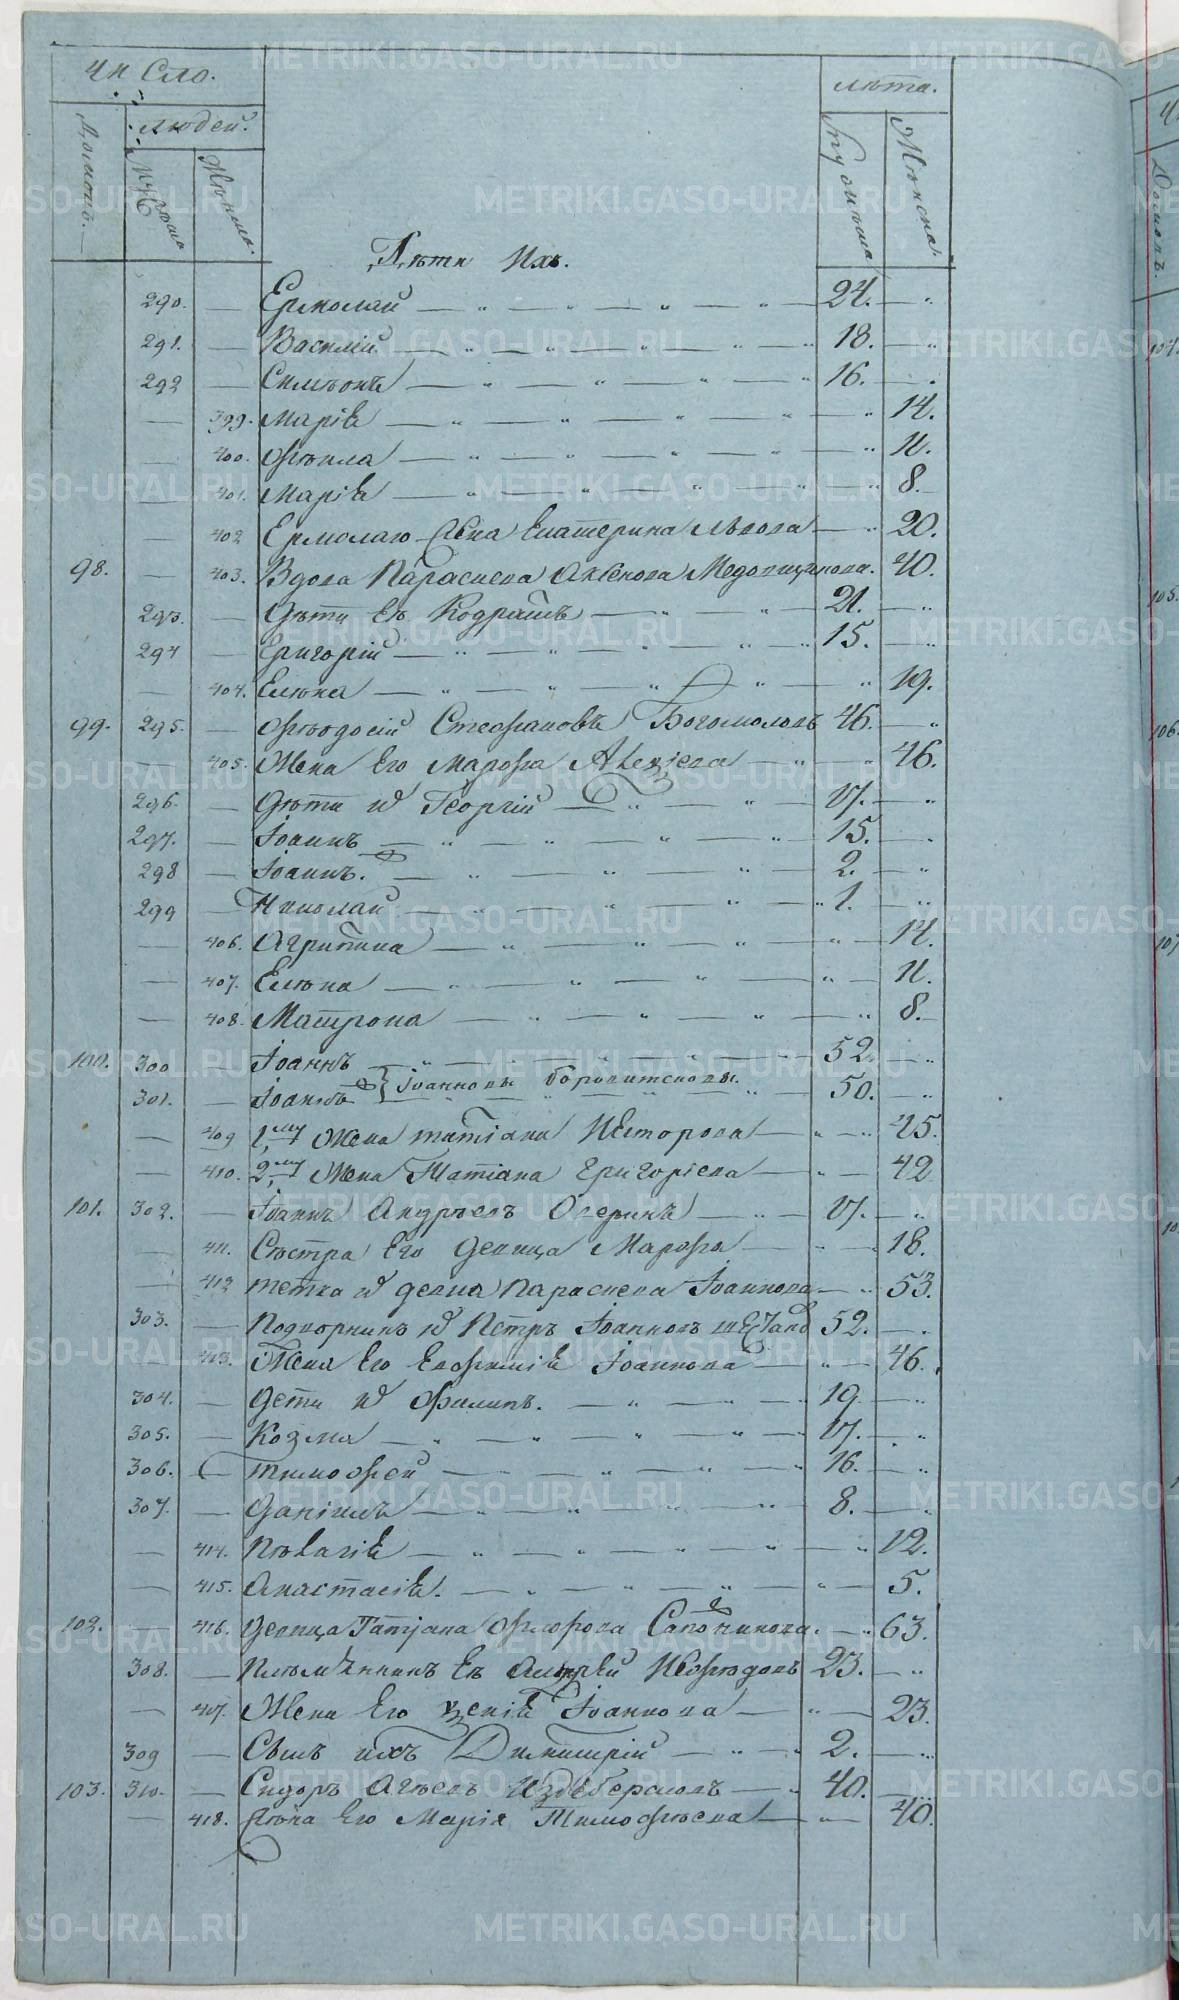 Число.
Людей.
Домовъ.
Мужска
Женска.
Лѣта.
Мужска
Женска.
Дѣти Ихъ.
290. Ермолай 24.
291. Василій 18.
292 Симѣонъ 16.
399. Марія 14.
400. Ѳѣкла 11.
401. Марія 8.
402 Ермолаю Жена Екатерина Львова 20.
98. 403. Вдова Параскева Аксенова 40.
293. Дѣти Ея Кодратъ 21.
294 Григорій 15.
404. Елѣна 19.
99. 295. Ѳѣодосій Стефановъ Богомоловъ 46.
405. Жена Его Марфа Алексіева 46.
296. Дѣти Георгій 17.
297. Іоаннъ 15.
298 Іоаннъ. 2.
299 Николай 1.
406. Агрипина 14.
407. Елѣна 11.
408. Матрона 8.
100. 300 Іоаннъ 52.
Іоанновы
301. Іоаннъ 50.
409 1му Жена Татіана Несторова 45.
410. 2му Жена Татіана Григоріева 42
101. 302. Іоаннъ Андрѣевъ Озеринъ 17.
411. Сѣстра Его Девица Марфа 18.
412 Тетка девка Параскева Іоаннова 53.
303. Подворникъ Петръ Іоанновъ 52.
413. Жена Его Евфимія Іоаннова 46.
304. Дети Филипъ. 19.
305. Козма 17.
306. Тимофей 16.
307. Даніилъ 8.
414. Пѣлагія 12.
415. Анастасія. 5.
102. 416. Девица Татіана Ѳѣдорова Сапожникова. 63.
308. Плѣмѣнникъ Ея Андрей 23.
417. Жена Его Іоаннова 23.
309 Сынъ ихъ Димитрій 2.
103. 310. Сидоръ 40.
418. Жена Его Марія Тимофѣева 40.
METRIKI.GASO-URAL.RU